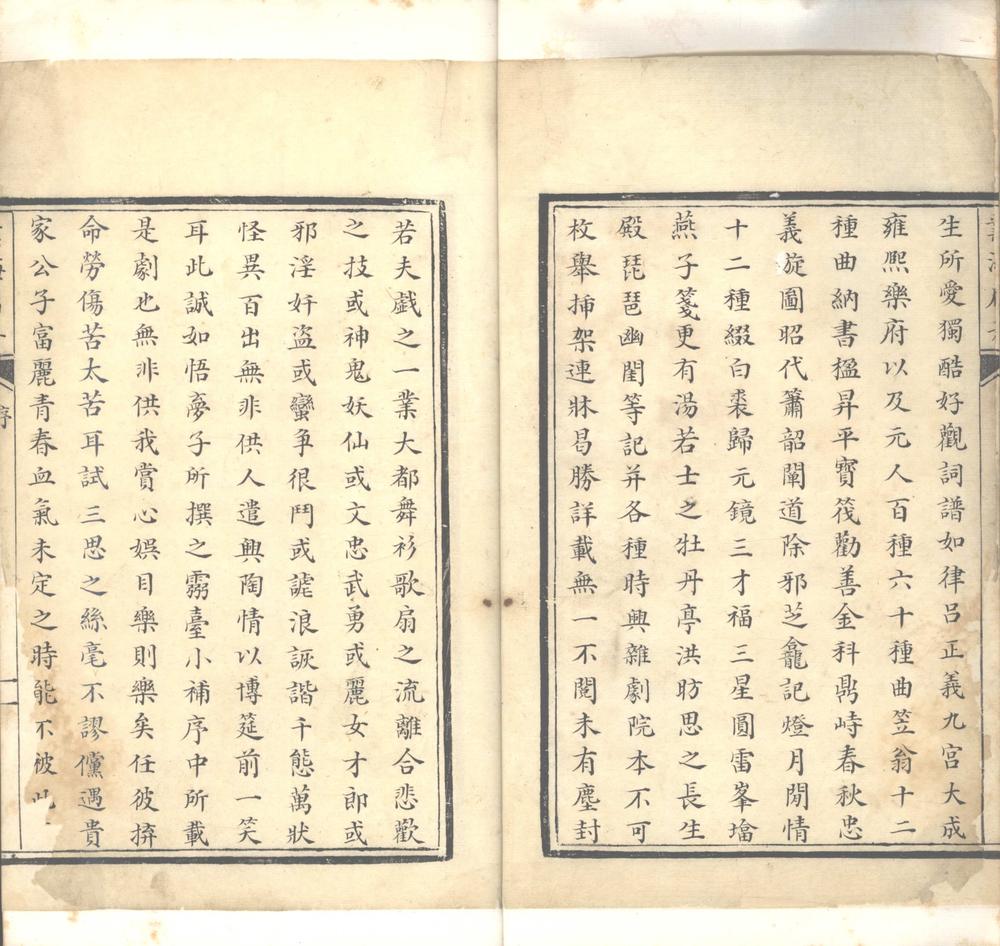 生所愛獨酷好觀詞譜如律呂正義九宮大成
雍熙樂府以及元人百種六十種曲笠翁十二
種曲納書楹昇平寶筏勸善金科鼎峙春秋忠
義旋圖昭代簫韶闡道除邪芝龕記燈月閒情
十二種綴白裘歸元鏡三才福三星圓雷峯墖
燕子箋更有湯若士之牡丹亭洪昉思之長生
殿琵琶幽閨等記并各種時興雜劇院本不可
枚舉揷架連牀曷勝詳載無一不閱未有塵封
若夫戲之一業大都舞衫歌扇之流離合悲歡
之技或神鬼妖仙或文忠武勇或麗女才郎或
邪淫奸盜或蠻爭很鬥或謔浪詼諧千態萬狀
怪異百出無非供人遣興陶情以博筵前一笑
耳此誠如悟夢子所撰之霧臺小補序中所載
是劇也無非供我賞心娛目樂則樂矣任彼拚
命勞傷苦太苦耳試三思之絲毫不謬儻遇貴
家公子富麗青春血氣未定之時能不被此
序